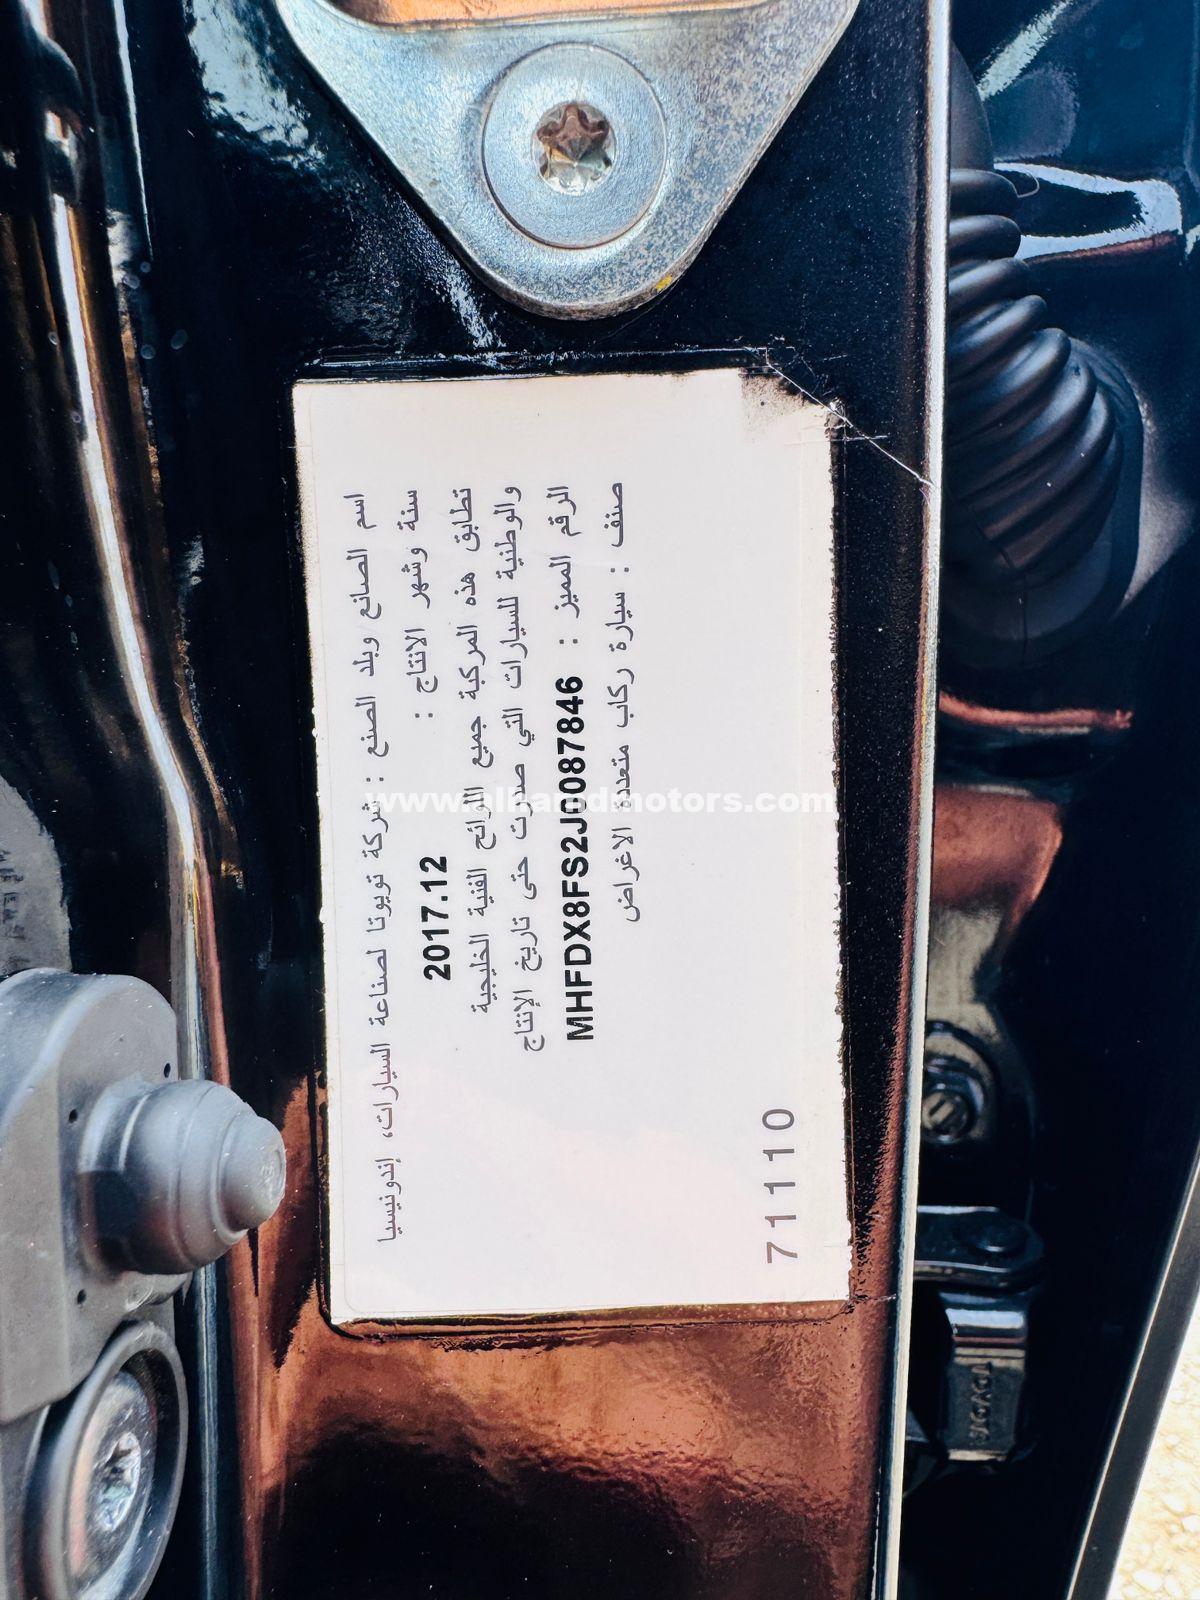 اسم الصانع وبلد الصنع : شركة تويوتا لصناعة السيارات، إندونيسيا
سنة وشهر الانتاج : 2017.12
تطابق هذه المركبة جميع اللوائح الفنية الخليجية
والوطنية للسيارات التي صدرت حتى تاريخ الإنتاج
الرقم المميز : MHFDX8FS2J0087846
صنف : سيارة ركاب متعددة الاغراض
711110
www.alhamdmotors.com
TOYOTA